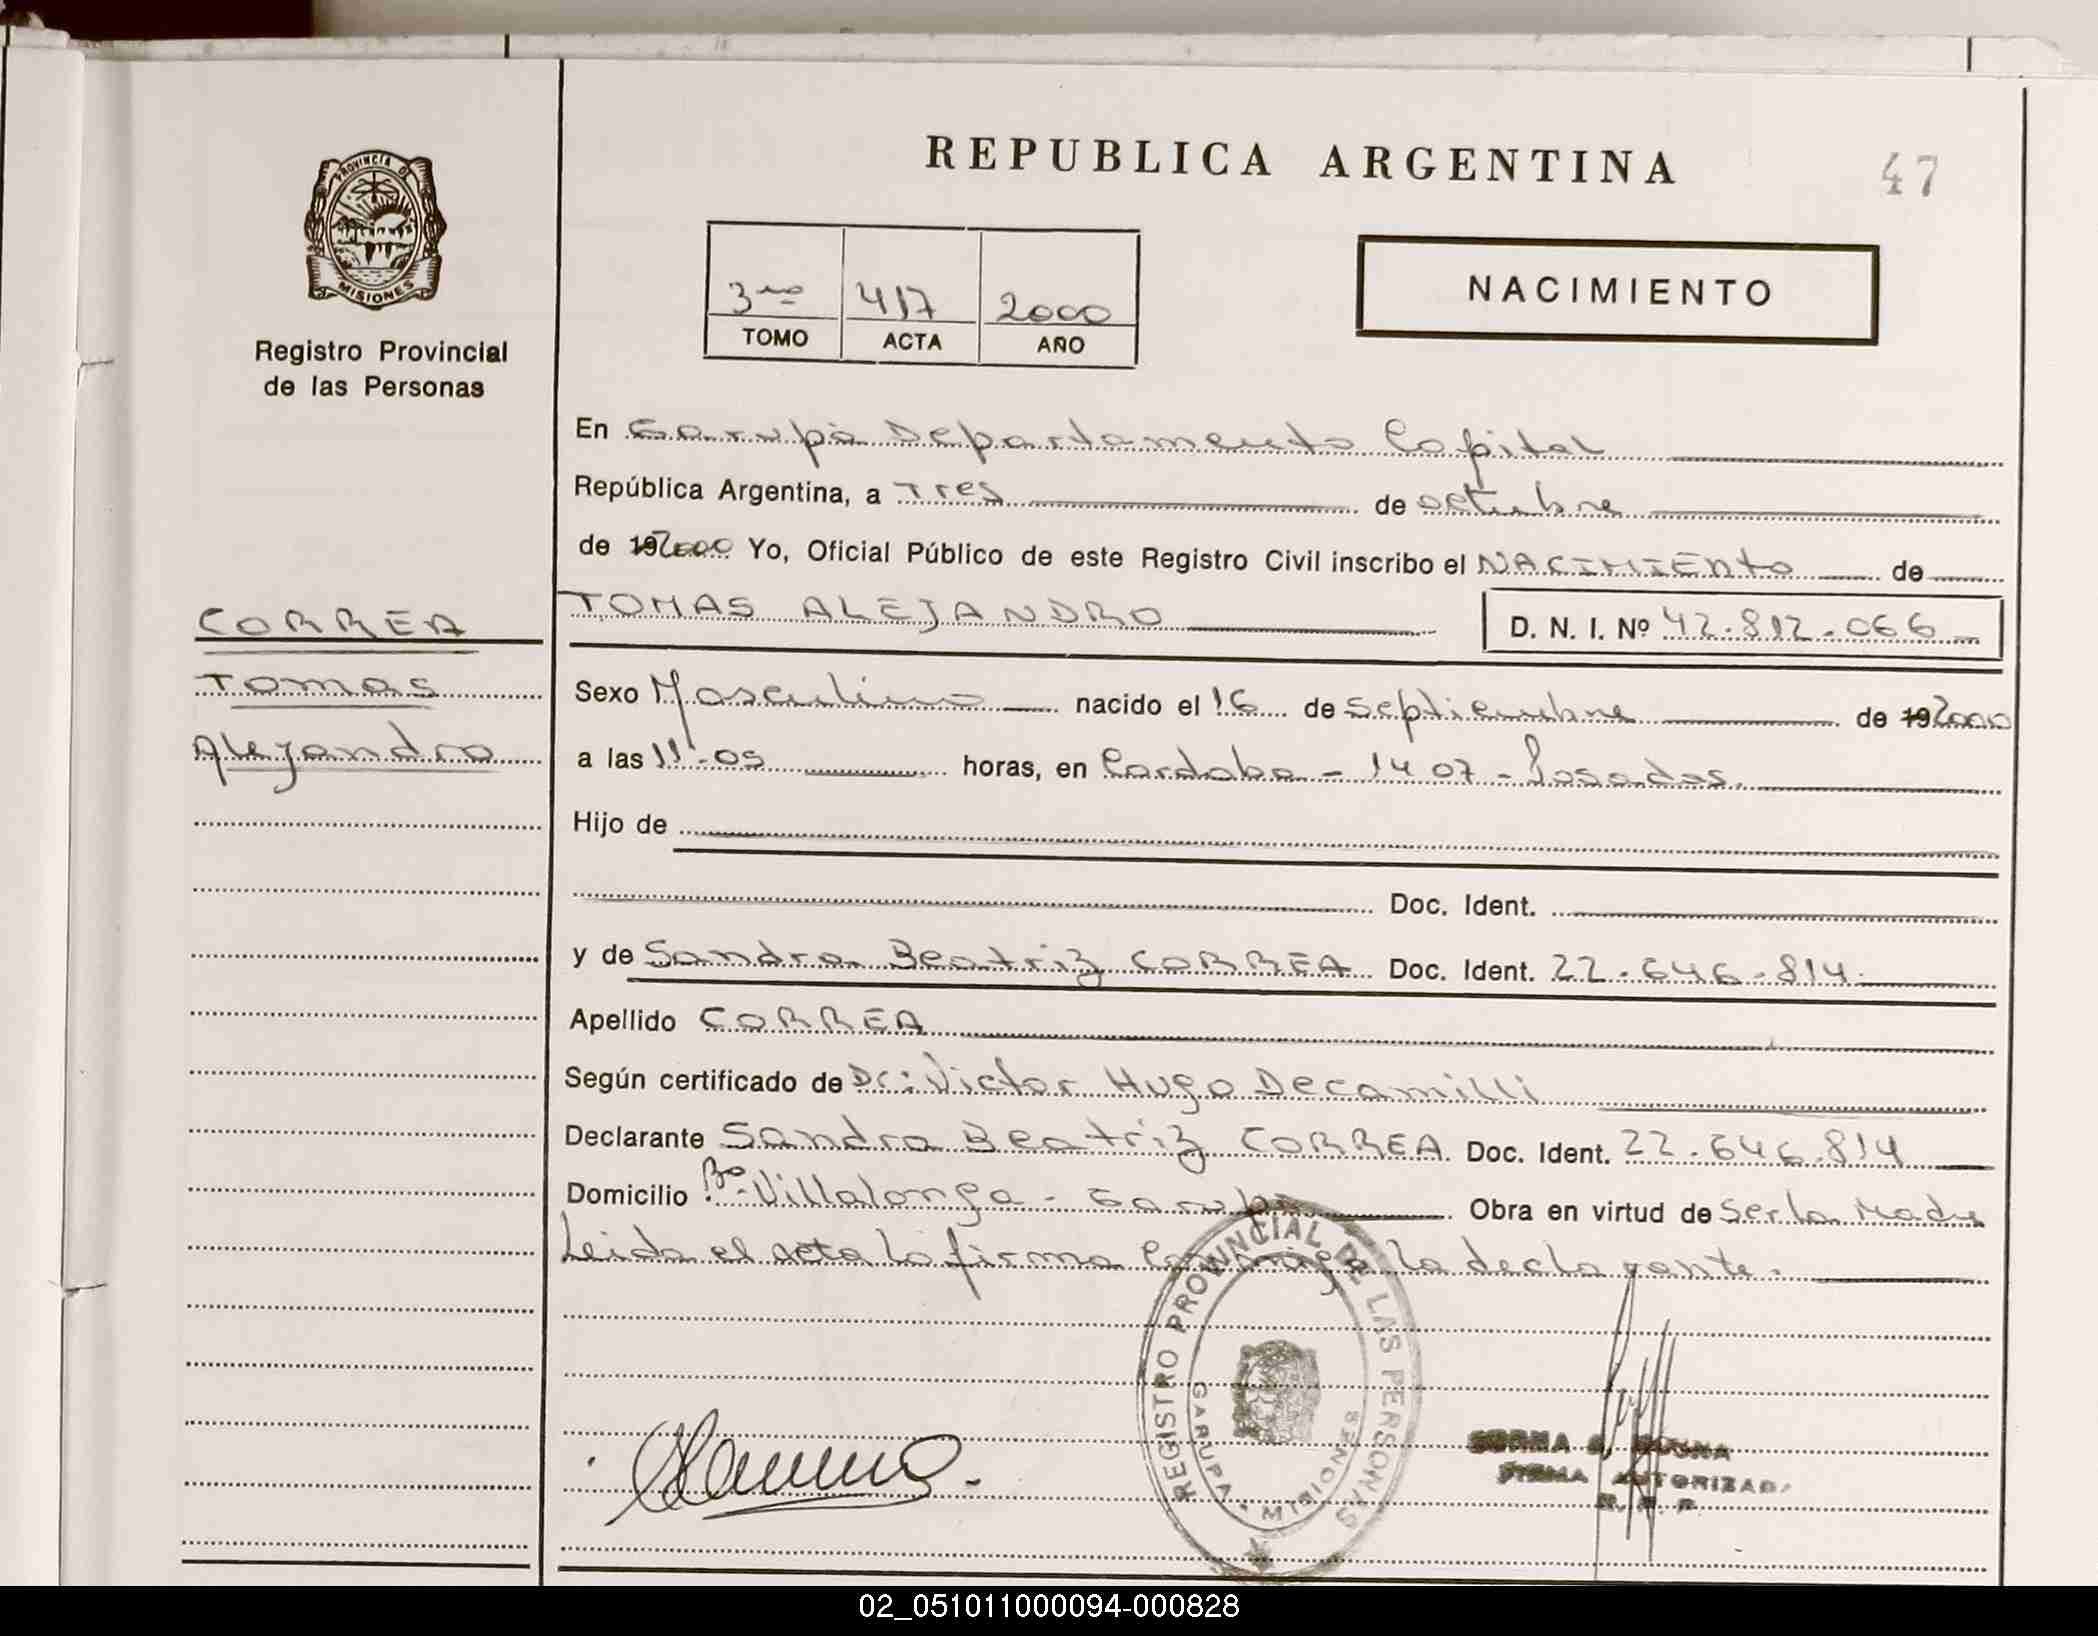 PROVINCIA DE
MISIONES
Registro Provincial
de las Personas
REPUBLICA ARGENTINA
47
3ro 417 2000
TOMO ACTA AÑO
NACIMIENTO
En Garupá Departamento Capital
República Argentina, a Tres de octubre
de 192000 Yo, Oficial Público de este Registro Civil inscribo el NACIMIENTO de
CORREA
Tomas
Alejandro
TOMAS ALEJANDRO D. N. I. Nº 42.812.066
Sexo Masculino nacido el 16 de Septiembre de 192000
a las 11.05 horas, en Cordoba - 1407 - Posadas.
Hijo de
Doc. Ident.
y de Sandra Beatriz CORREA Doc. Ident. 22.646.814.
Apellido CORREA
Según certificado de Dr: Victor Hugo Decamilli
Declarante Sandra Beatriz CORREA. Doc. Ident. 22.646.814
Domicilio Bo. Villalonga - Garupá Obra en virtud de Ser la Madre
Leida el acta la firma conmigo la declarante.
REGISTRO PROVINCIAL DE LAS PERSONAS
GARUPA - MISIONES
FIRMA AUTORIZADA
R. P. P.
02_051011000094-000828